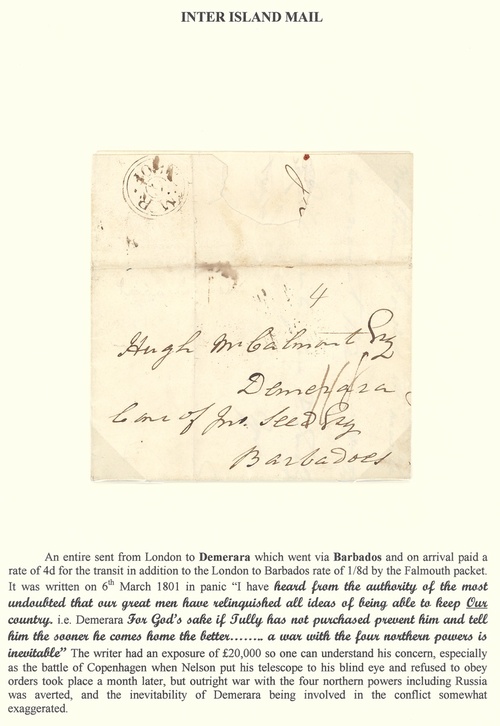 INTER ISLAND MAIL
4
Hugh McCalmont Esq
Demerara
Care of Jno. Seed Esq
Barbadoes
An entire sent from London to Demerara which went via Barbados and on arrival paid a
rate of 4d for the transit in addition to the London to Barbados rate of 1/8d by the Falmouth packet.
It was written on 6th March 1801 in panic “I have heard from the authority of the most
undoubted that our great men have relinquished all ideas of being able to keep Our
country. i.e. Demerara For God's sake if Tully has not purchased prevent him and tell
him the sooner he comes home the better…….. a war with the four northern powers is
inevitable” The writer had an exposure of £20,000 so one can understand his concern, especially
as the battle of Copenhagen when Nelson put his telescope to his blind eye and refused to obey
orders took place a month later, but outright war with the four northern powers including Russia
was averted, and the inevitability of Demerara being involved in the conflict somewhat
exaggerated.